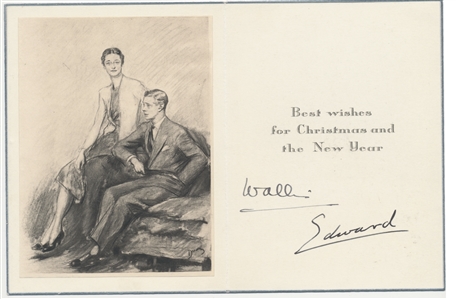 Best wishes
for Christmas and
the New Year
Wallis
Edward